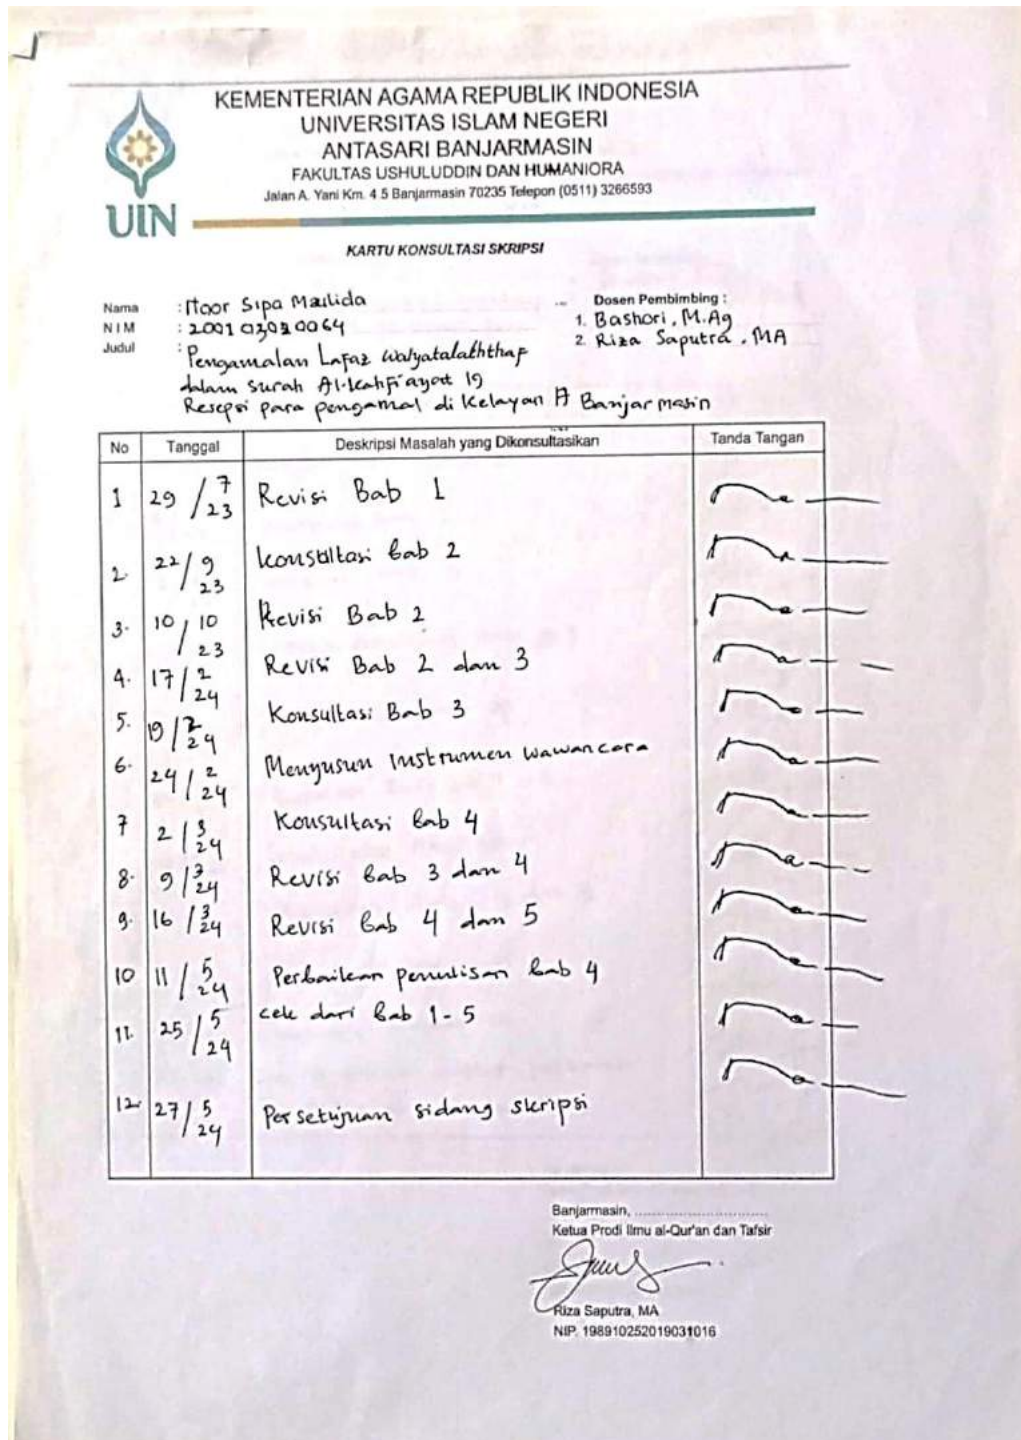 KEMENTERIAN AGAMA REPUBLIK INDONESIA
UNIVERSITAS ISLAM NEGERI
ANTASARI BANJARMASIN
FAKULTAS USHULUDDIN DAN HUMANIORA
Jalan A. Yani Km. 4.5 Banjarmasin 70235 Telepon (0511) 3266593
UIN
KARTU KONSULTASI SKRIPSI
Nama : Noor Sipa Maulida
NIM : 200103020064
Judul : Pengamalan Lafaz Walyatalaththaf
dalam Surah Al-Kahfi ayat 19
Resepsi para pengamal di Kelayan A Banjarmasin
Dosen Pembimbing :
1. Bashori, M.Ag
2. Riza Saputra, MA
No Tanggal Deskripsi Masalah yang Dikonsultasikan Tanda Tangan
1 29/7/23 Revisi Bab 1
2. 22/9/23 Konsultasi bab 2
3. 10/10/23 Revisi Bab 2
4. 17/2/24 Revisi Bab 2 dan 3
5. 19/2/24 Konsultasi Bab 3
6. 24/2/24 Menyusun Instrumen wawancara
7 2/3/24 Konsultasi bab 4
8. 9/3/24 Revisi bab 3 dan 4
9. 16/3/24 Revisi bab 4 dan 5
10 11/5/24 Perbaikan penulisan bab 4
11. 25/5/24 cek dari bab 1-5
12. 27/5/24 Persetujuan sidang skripsi
Banjarmasin, ..............................
Ketua Prodi Ilmu al-Qur'an dan Tafsir
Riza Saputra, MA
NIP. 198910252019031016